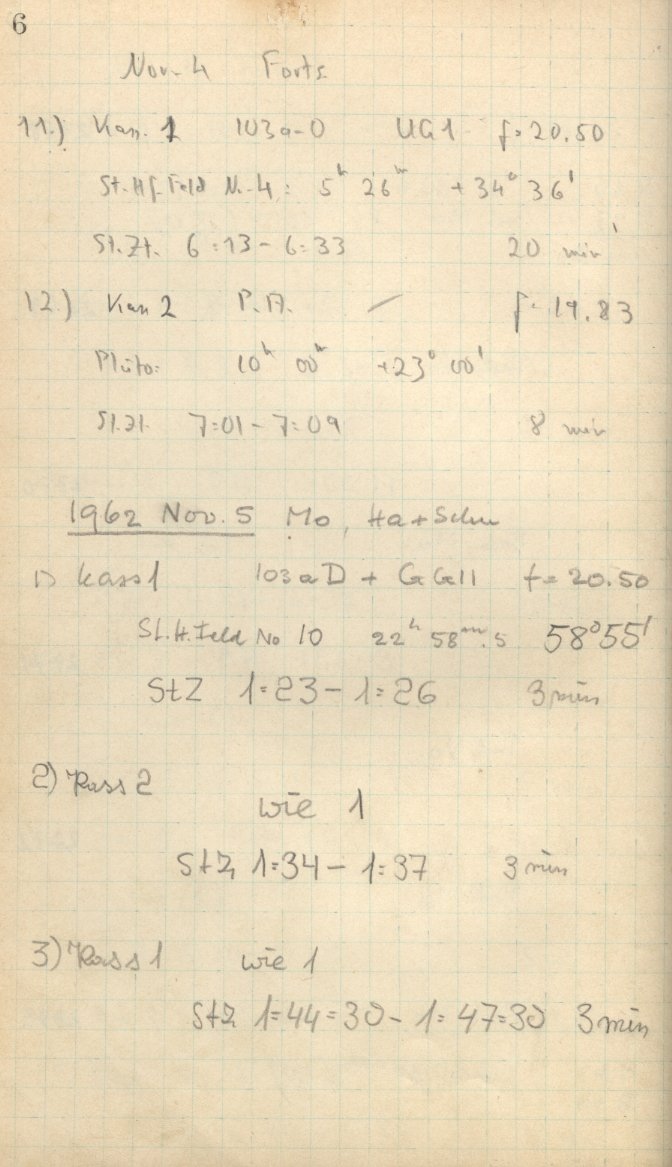 6
Nov. 4 Forts
11.) Kas. 1 103a-O UG1 f=20.50
St.Hf.Feld N. 4: 5h 26m +34° 36'
St.Zt. 6:13 - 6:33 20 min
12.) Kas 2 P.A. — f=19.83
Pluto: 10h 00m +23° 00'
St.Zt. 7:01 - 7:09 8 min
1962 Nov. 5 Mo, Ha + Schu
1) Kass 1 103aD + GG11 f=20.50
St.H.Feld No 10 22h 58m.5 58°55'
StZ 1:23 - 1:26 3 min
2) Kass 2
wie 1
StZ 1:34 - 1:37 3 min
3) Kass 1 wie 1
StZ 1:44:30 - 1:47:30 3 min